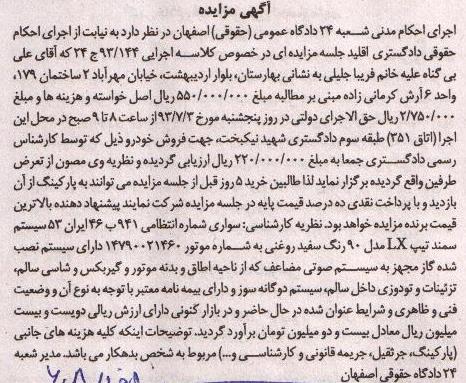 آگهی مزایده
اجرای احکام مدنی شعبه ۲۴ دادگاه عمومی (حقوقی) اصفهان در نظر دارد به نیابت از اجرای احکام
حقوقی دادگستری اقلید جلسه مزایده ای در خصوص کلاسه اجرایی ۹۳/۱۴۴ ج ۲۴ که آقای علی
بی گناه علیه خانم فریبا جلیلی به نشانی بهارستان، بلوار اردیبهشت، خیابان مهرآباد ۲ ساختمان ۱۷۹،
واحد ۶ آرش کرمانی زاده مبنی بر مطالبه مبلغ ۵۵۰/۰۰۰/۰۰۰ ریال اصل خواسته و هزینه ها و مبلغ
۲/۷۵۰/۰۰۰ ریال حق الاجرای دولتی در روز پنجشنبه مورخ ۹۳/۷/۳ از ساعت ۸ تا ۹ صبح در محل این
اجرا (اتاق ۳۵۱) طبقه سوم دادگستری شهید نیکبخت، جهت فروش خودرو ذیل که توسط کارشناس
رسمی دادگستری جمعا به مبلغ ۲۲۰/۰۰۰/۰۰۰ ریال ارزیابی گردیده و نظریه وی مصون از تعرض
طرفین واقع گردیده برگزار نماید لذا طالبین خرید ۵ روز قبل از جلسه مزایده می توانند به پارکینگ از آن
بازدید و با پرداخت نقدی ده درصد قیمت پایه در جلسه مزایده شرکت نمایند پیشنهاد دهنده بالاترین
قیمت برنده مزایده خواهد بود. نظریه کارشناسی: سواری شماره انتظامی ۹۴۱ ب ۴۶ ایران ۵۳ سیستم
سمند تیپ LX مدل ۹۰ رنگ سفید روغنی به شماره موتور ۱۴۷۹۰۰۲۱۴۶۰ دارای سیستم نصب
شده گاز مجهز به سیستم صوتی مضاعف که از ناحیه اطاق و بدنه موتور و گیربکس و شاسی سالم،
تزئینات و تودوزی داخل سالم، سیستم دوگانه سوز و دارای بیمه نامه معتبر با توجه به نوع آن و وضعیت
فنی و ظاهری و شرایط عنوان شده در حال حاضر و در بازار کنونی دارای ارزش ریالی دویست و بیست
میلیون ریال معادل بیست و دو میلیون تومان برآورد گردید. توضیحات اینکه کلیه هزینه های جانبی
(پارکینگ، جرثقیل، جریمه قانونی و کارشناسی و...) مربوط به شخص بدهکار می باشد. مدیر شعبه
۲۴ دادگاه حقوقی اصفهان